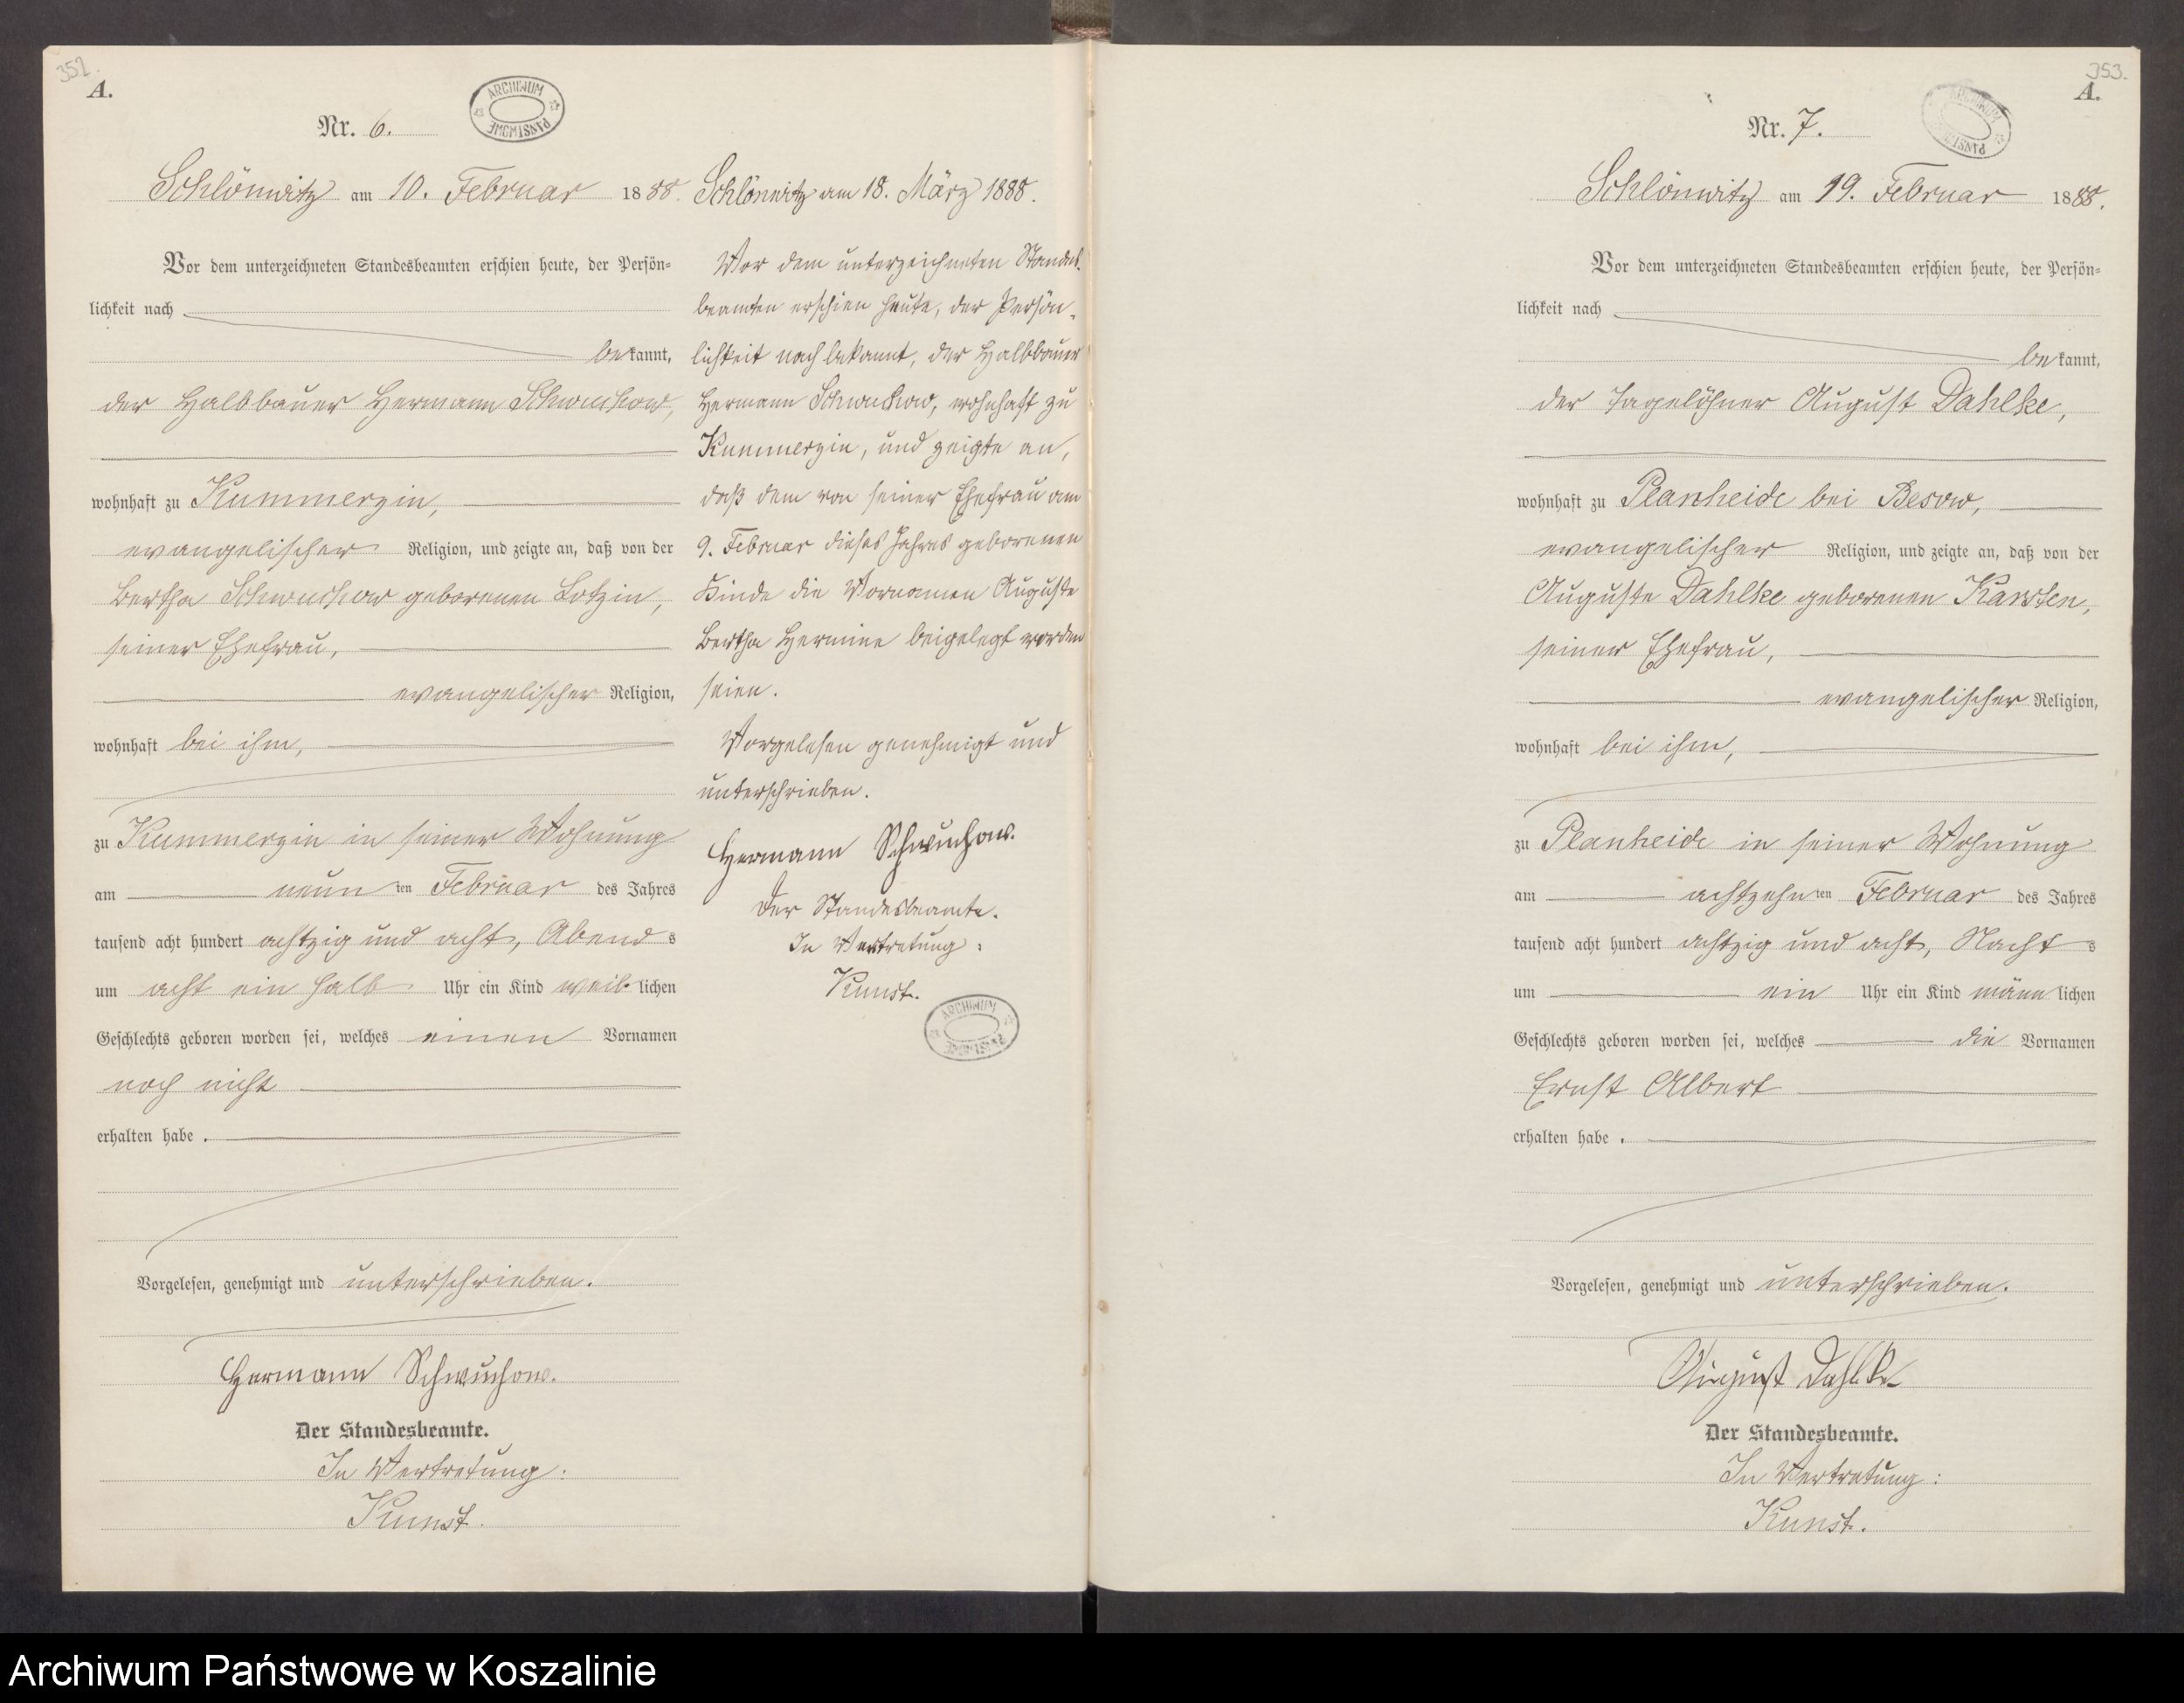 352.
A.
Nr. 6.
ARCHIWUM PAŃSTWOWE
Schlönwitz am 10. Februar 1888.
Vor dem unterzeichneten Standesbeamten erschien heute, der Persön=
lichkeit nach
bekannt,
der Halbbauer Hermann Schwuchow,
wohnhaft zu Kummerzin,
evangelischer Religion, und zeigte an, daß von der
Bertha Schwuchow geborenen Lotzin,
seiner Ehefrau,
evangelischer Religion,
wohnhaft bei ihm,
zu Kummerzin in seiner Wohnung
am neunten Februar des Jahres
tausend acht hundert achtzig und acht, Abends
um acht ein halb Uhr ein Kind weiblichen
Geschlechts geboren worden sei, welches einen Vornamen
noch nicht
erhalten habe.
Vorgelesen, genehmigt und unterschrieben.
Hermann Schwuchow.
Der Standesbeamte.
In Vertretung:
Kunst.
Schlönwitz am 18. März 1888.
Vor dem unterzeichneten Standes-
beamten erschien heute, der Persön-
lichkeit nach bekannt, der Halbbauer
Hermann Schwuchow, wohnhaft zu
Kummerzin, und zeigte an,
daß dem von seiner Ehefrau am
9. Februar dieses Jahres geborenen
Kinde die Vornamen Auguste
Bertha Hermine beigelegt worden
seien.
Vorgelesen genehmigt und
unterschrieben.
Hermann Schwuchow.
Der Standesbeamte.
In Vertretung:
Kunst.
ARCHIWUM PAŃSTWOWE
353.
A.
Nr. 7.
ARCHIWUM PAŃSTWOWE
Schlönwitz am 19. Februar 1888.
Vor dem unterzeichneten Standesbeamten erschien heute, der Persön=
lichkeit nach
bekannt,
der Tagelöhner August Dahlke,
wohnhaft zu Planheide bei Besow,
evangelischer Religion, und zeigte an, daß von der
Auguste Dahlke geborenen Karsten,
seiner Ehefrau,
evangelischer Religion,
wohnhaft bei ihm,
zu Planheide in seiner Wohnung
am achtzehnten Februar des Jahres
tausend acht hundert achtzig und acht, Nachts
um ein Uhr ein Kind männlichen
Geschlechts geboren worden sei, welches die Vornamen
Ernst Albert
erhalten habe.
Vorgelesen, genehmigt und unterschrieben.
August Dahlke
Der Standesbeamte.
In Vertretung:
Kunst.
Archiwum Państwowe w Koszalinie